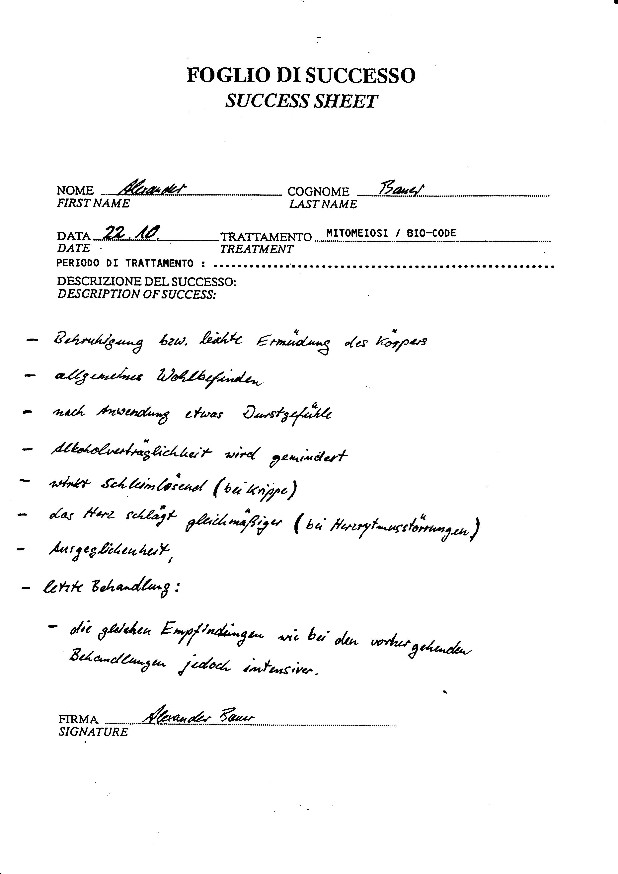 FOGLIO DI SUCCESSO
SUCCESS SHEET
NOME Alexander COGNOME Bauer
FIRST NAME LAST NAME
DATA 22.10. TRATTAMENTO MITOMEIOSI / BIO-CODE
DATE TREATMENT
PERIODO DI TRATTAMENTO :
DESCRIZIONE DEL SUCCESSO:
DESCRIPTION OF SUCCESS:
– Behruhigung bzw. leichte Ermüdung des Körpers
– allgemeines Wohlbefinden
– nach Anwendung etwas Durstgefühle
– Alkoholverträglichkeit wird gemindert
– wirkt Schleimlösend (bei Krippe)
– das Herz schlägt gleichmäßiger (bei Herzrytmusstörrungen)
– Ausgeglichenheit,
– letzte Behandlung:
– die gleichen Empfindungen wie bei den vorher gehenden
Behandlungen jedoch intensiver.
FIRMA Alexander Bauer
SIGNATURE